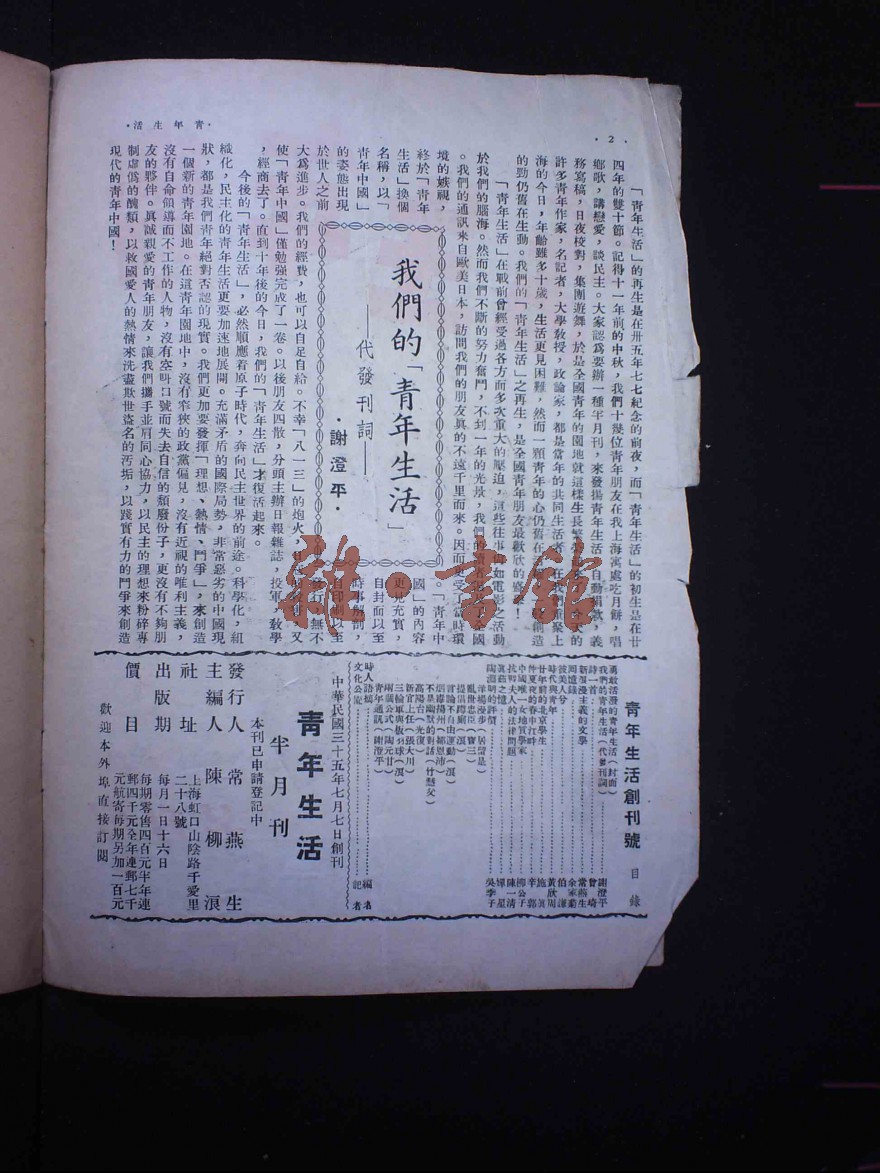 ·2·
·青年生活·
「青年生活」的再生是在卅五年七七紀念的前夜，而「青年生活」的初生是在廿
四年的雙十節。記得十一年前的中秋，我們十幾位青年朋友在我上海寓處吃月餅，唱
鄉歌，講戀愛，談民主。大家認為要辦一種半月刊，來發揚青年生活，自動捐款，義
務寫稿，日夜校對，集團遊舞，於是全國青年的園地就這樣生長繁
許多青年作家，名記者，大學教授，政論家，都是當年的共同生活者，在
海的今日，年齡雖多十歲，生活更見困難，然而一顆青年的心仍舊在
的勁仍舊在生動。我們的「青年生活」之再生，是全國青年朋友最歡欣的
「青年生活」在戰前曾經受過各方面多次重大的壓迫，這些往事
於我們的腦海。然而我們不斷的努力奮鬥，不到一年的光景，我們的
。我們的通訊來自歐美日本，訪問我們的朋友真的不遠千里而來。因而
境的嫉視，
終於「青年
生活」換個
名稱，以「
青年中國」
的姿態出現
於世人之前
我們的「青年生活」
——代發刊詞——
·謝澄平·
。「青年中
國」的內容
更見充實，
自封面以至
時事解剖，
自印刷以至
發行，無不
大為進步。我們的經費，也可以自足自給。不幸「八一三」的炮火，
使「青年中國」僅勉強完成了一卷。以後朋友四散，分頭主辦日報雜誌，投軍，教學
，經商去了。直到十年後的今日，我們的「青年生活」才復活起來。
今後的「青年生活」，必然順應着原子時代，奔向民主世界的前途。科學化，組
織化，民主化的青年生活更要加速地展開。充滿矛盾的國際局勢，非常惡劣的中國現
狀，都是我們青年絕對否認的現實。我們更加要發揮「理想、熱情、鬥爭」，來創造
一個新的青年園地。在這青年園地中，沒有窄狹的政黨偏見，沒有近視的唯利主義，
沒有自命領導而不工作的人物，沒有空叫口號而失去自信的頹廢份子，更沒有不夠朋
友的夥伴。真誠親愛的青年朋友，讓我們攜手並肩同心協力，以民主的理想來粉碎專
制虛僞的醜類，以救國愛人的熱情來洗盡欺世盜名的汚垢，以踐實有力的鬥爭來創造
現代的青年中國！
青年生活創刊號 目錄
勇敢活潑的青年生活（封面）
我們的青年生活（代發刊詞）…謝澄平
詩一首…曾琦
新浪漫主義的文學…常燕生
周遊錄…余家菊
談美人…伯謙
時代與青年…黃欣周
廿年前的北京學生…施眞
仲夏夜的春申江畔…辛郭
中國唯一女地質學家…柳公子
抗戰夫人的法律問題…陳一清
眞茹之憶…嬋星
陶淵明的評價…吳季子
洋場漫步（居留是）
亂世忠臣（寶三）
提倡蹲廁（溟）
言論不自由運動（溟）
烟爆揚州（補恩沛）
新官上任（張大川）
高陽台（光復）
不是幽默的對話（竹懸女）
三輪軍與板羽球（溟）
兩個公式（陶元甘）
青年通訊（謝澄平）
時人語摘…編者
文化公寓…記者
中華民國三十五年七月七日創刊
青年生活
半月刊
本刊已申請登記中
發行人 常燕生
主編人 陳柳浪
社址 上海虹口山陰路千愛里
二十八號
出版期 每月一日十六日
價目 每期零售四百元半年連
郵四千元全年連郵七千
元航寄每期另加一百元
歡迎本外埠直接訂閱
雜·書館